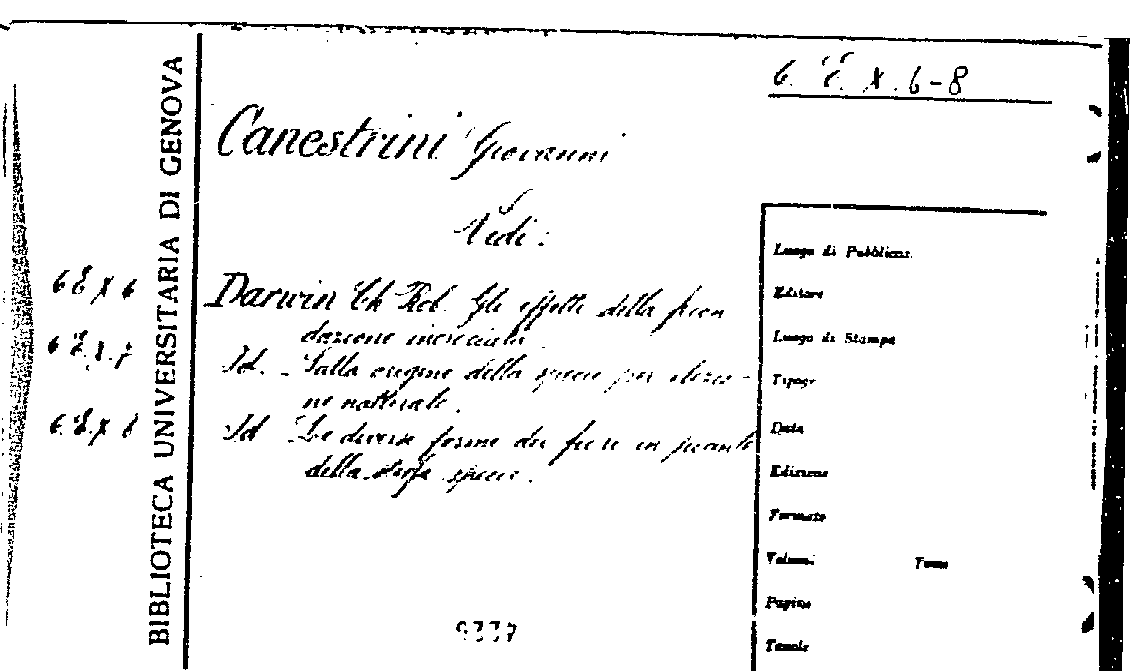 6. E. X. 6-8
BIBLIOTECA UNIVERSITARIA DI GENOVA
Canestrini Giovanni
Vedi:
6 E X 6
Darwin Ch Rob. Gli effetti della fecon
dazione incrociata.
6 E. X. 7
Id. - Sulla origine della specie per elezio-
ne naturale.
6. E. X 8
Id Le diverse forme dei fiori in piante
della stessa specie.
Luogo di Pubblicaz.
Editore
Luogo di Stampa
Tipogr
Data
Edizione
Formato
Volumi Tomo
Pagine
Tavole
9337